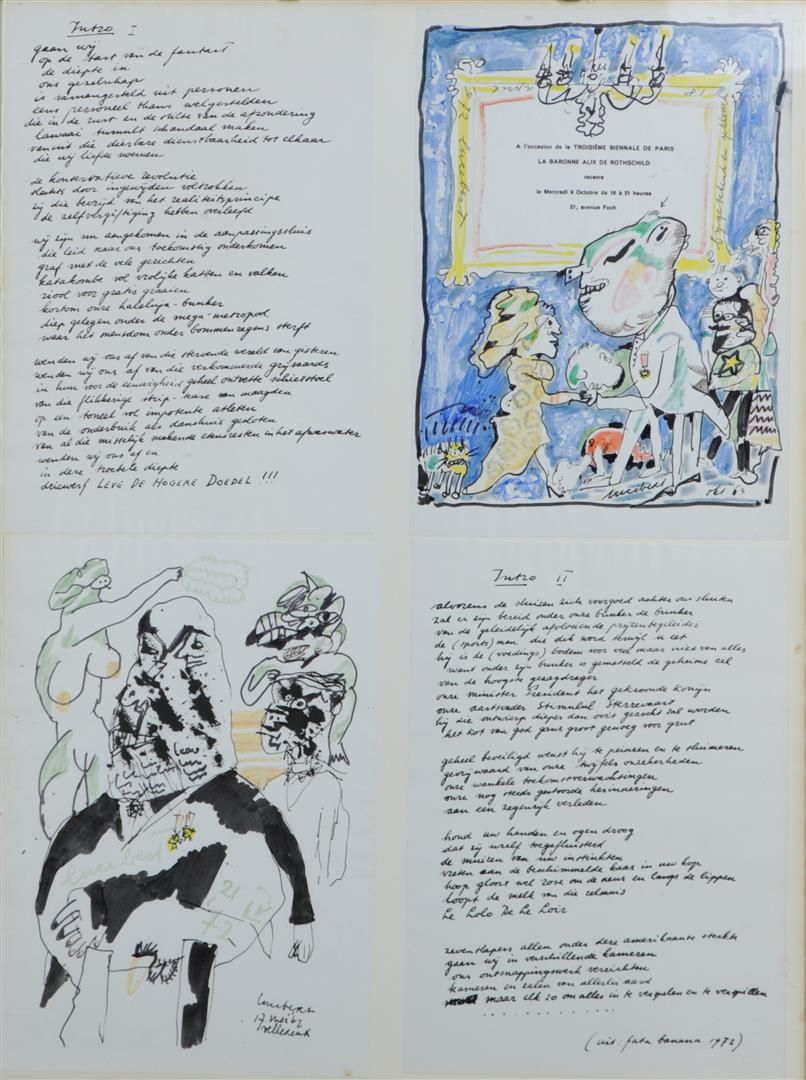 Intro I
gaan wij
op de tast van de fantast
de diepte in
ons gezelschap
is samengesteld uit personen
eens personeel thans welgestelden
die in de rust en de stilte van de afzondering
lawaai tumult schandaal maken
vanuit die dierbare dienstbaarheid tot elkaar
die wij liefde noemen
de konservatieve revolutie
slechts door ingewijden voltrokken
zij die bevrijd van het realiteitsprincipe
de zelfvergiftiging hebben overleefd
wij zijn nu aangekomen in de aanpassingssluis
die leid naar ons toekomstig onderkomen
graf met de vele gezichten
katakombe vol vrolijke katten en valken
riool voor gratis graaien
kortom onze haleluja-bunker
diep gelegen onder de mega-metropool
waar het mensdom onder bommenregens sterft
wenden wij ons af van die stervende wereld van gisteren
wenden wij ons af van die verkommerde grijsaards
in hun voor de eeuwigheid geheel ontvette schietstoel
van die flikkerige strip-tease van maagden
op een toneel vol impotente atleten
van de onderbuik als danshuis gesloten
van al die misselijk makende etensresten in het afwaswater
wenden wij ons af en
in deze troebele diepte
driewerf LEVE DE HOGERE DOEDEL !!!
A l'occasion de la TROISIÈME BIENNALE DE PARIS
LA BARONNE ALIX DE ROTHSCHILD
recevra
le Mercredi 9 Octobre de 18 à 21 heures
21, avenue Foch
lucebert okt 63
lucebert
21
72
lucebert
17 mei 62
Intro II
alvorens de sluizen zich voorgoed achter ons sluiten
zal er zijn bereid onder onze bunker de bunker
van de geleidelijk afvloeiende prijzenbegeleider
de (sports) man die dik word terwijl u eet
hij is de (voedings) bodem voor veel maar niet van alles
want onder zijn bunker is gemetseld de geheime cel
van de hoogste gezagdrager
onze minister President het gekroonde konijn
onze aartsvader Stimulul Sterrevaart
hij die ontwierp dieper dan ooit gezocht zal worden
het kot van god gans groot genoeg voor grut
geheel beveiligd wenst hij te peinzen en te sluimeren
gevrijwaard van onze twijfels onzekerheden
onze wankele toekomstverwachtingen
onze nog steeds gestoorde herinneringen
aan een zegenrijk verleden
houd uw handen en ogen droog
dat zij uzelf toegefluisterd
de muizen van uw instinkten
vreten aan de beschimmelde kaas in uw kop
hoop gloort wel roze om de neus en langs de lippen
loopt de melk van die zelmuis
Le Lolo De Le Loir
zevenslapers allen onder deze amerikaanse sterkte
gaan wij in verschillende kameren
ons ontsnappingswerk verrichten
kameren en zalen van allerlei aard
maar elk zo om alles in te vergelen en te vergulden
. . . . . . . . . .
(uit: fata banana 1972)